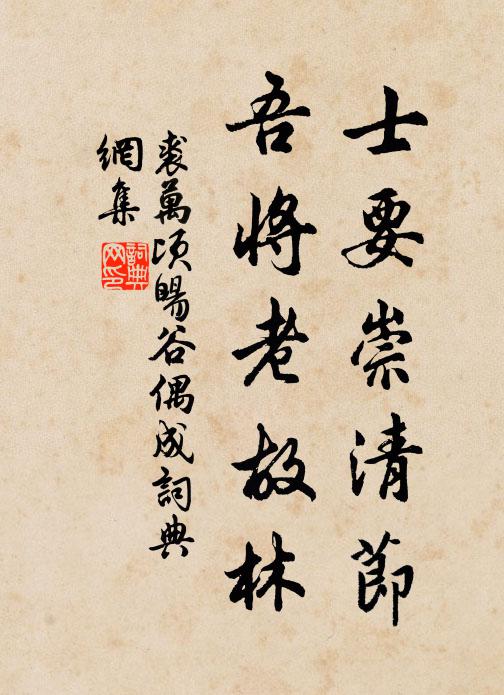 士要崇清節
吾將老故林
裘萬頃暘谷偶成詞典
網集
詞典網印